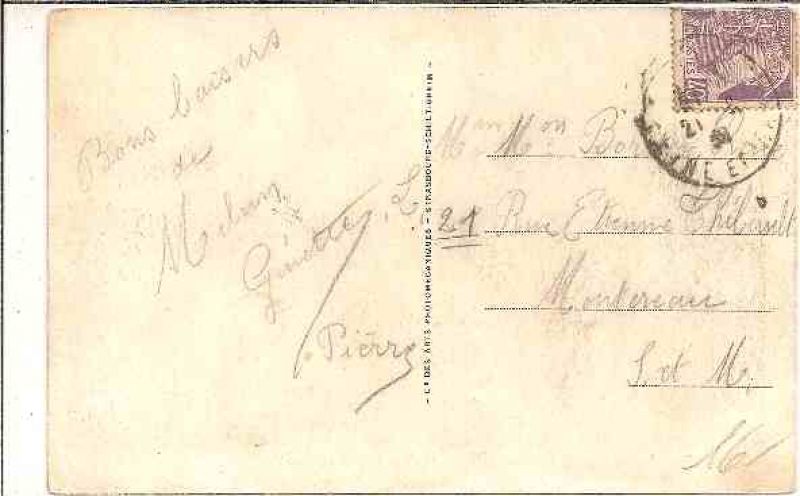 Bons baisers
de
Melun
Ginette L.
Pierre
- Cie DES ARTS PHOTOMÉCANIQUES - STRASBOURG-SCHILTIGHEIM -
Mme Mon
21 Rue Etienne Thibault
Montereau
S. et M.
21
SEINE ET